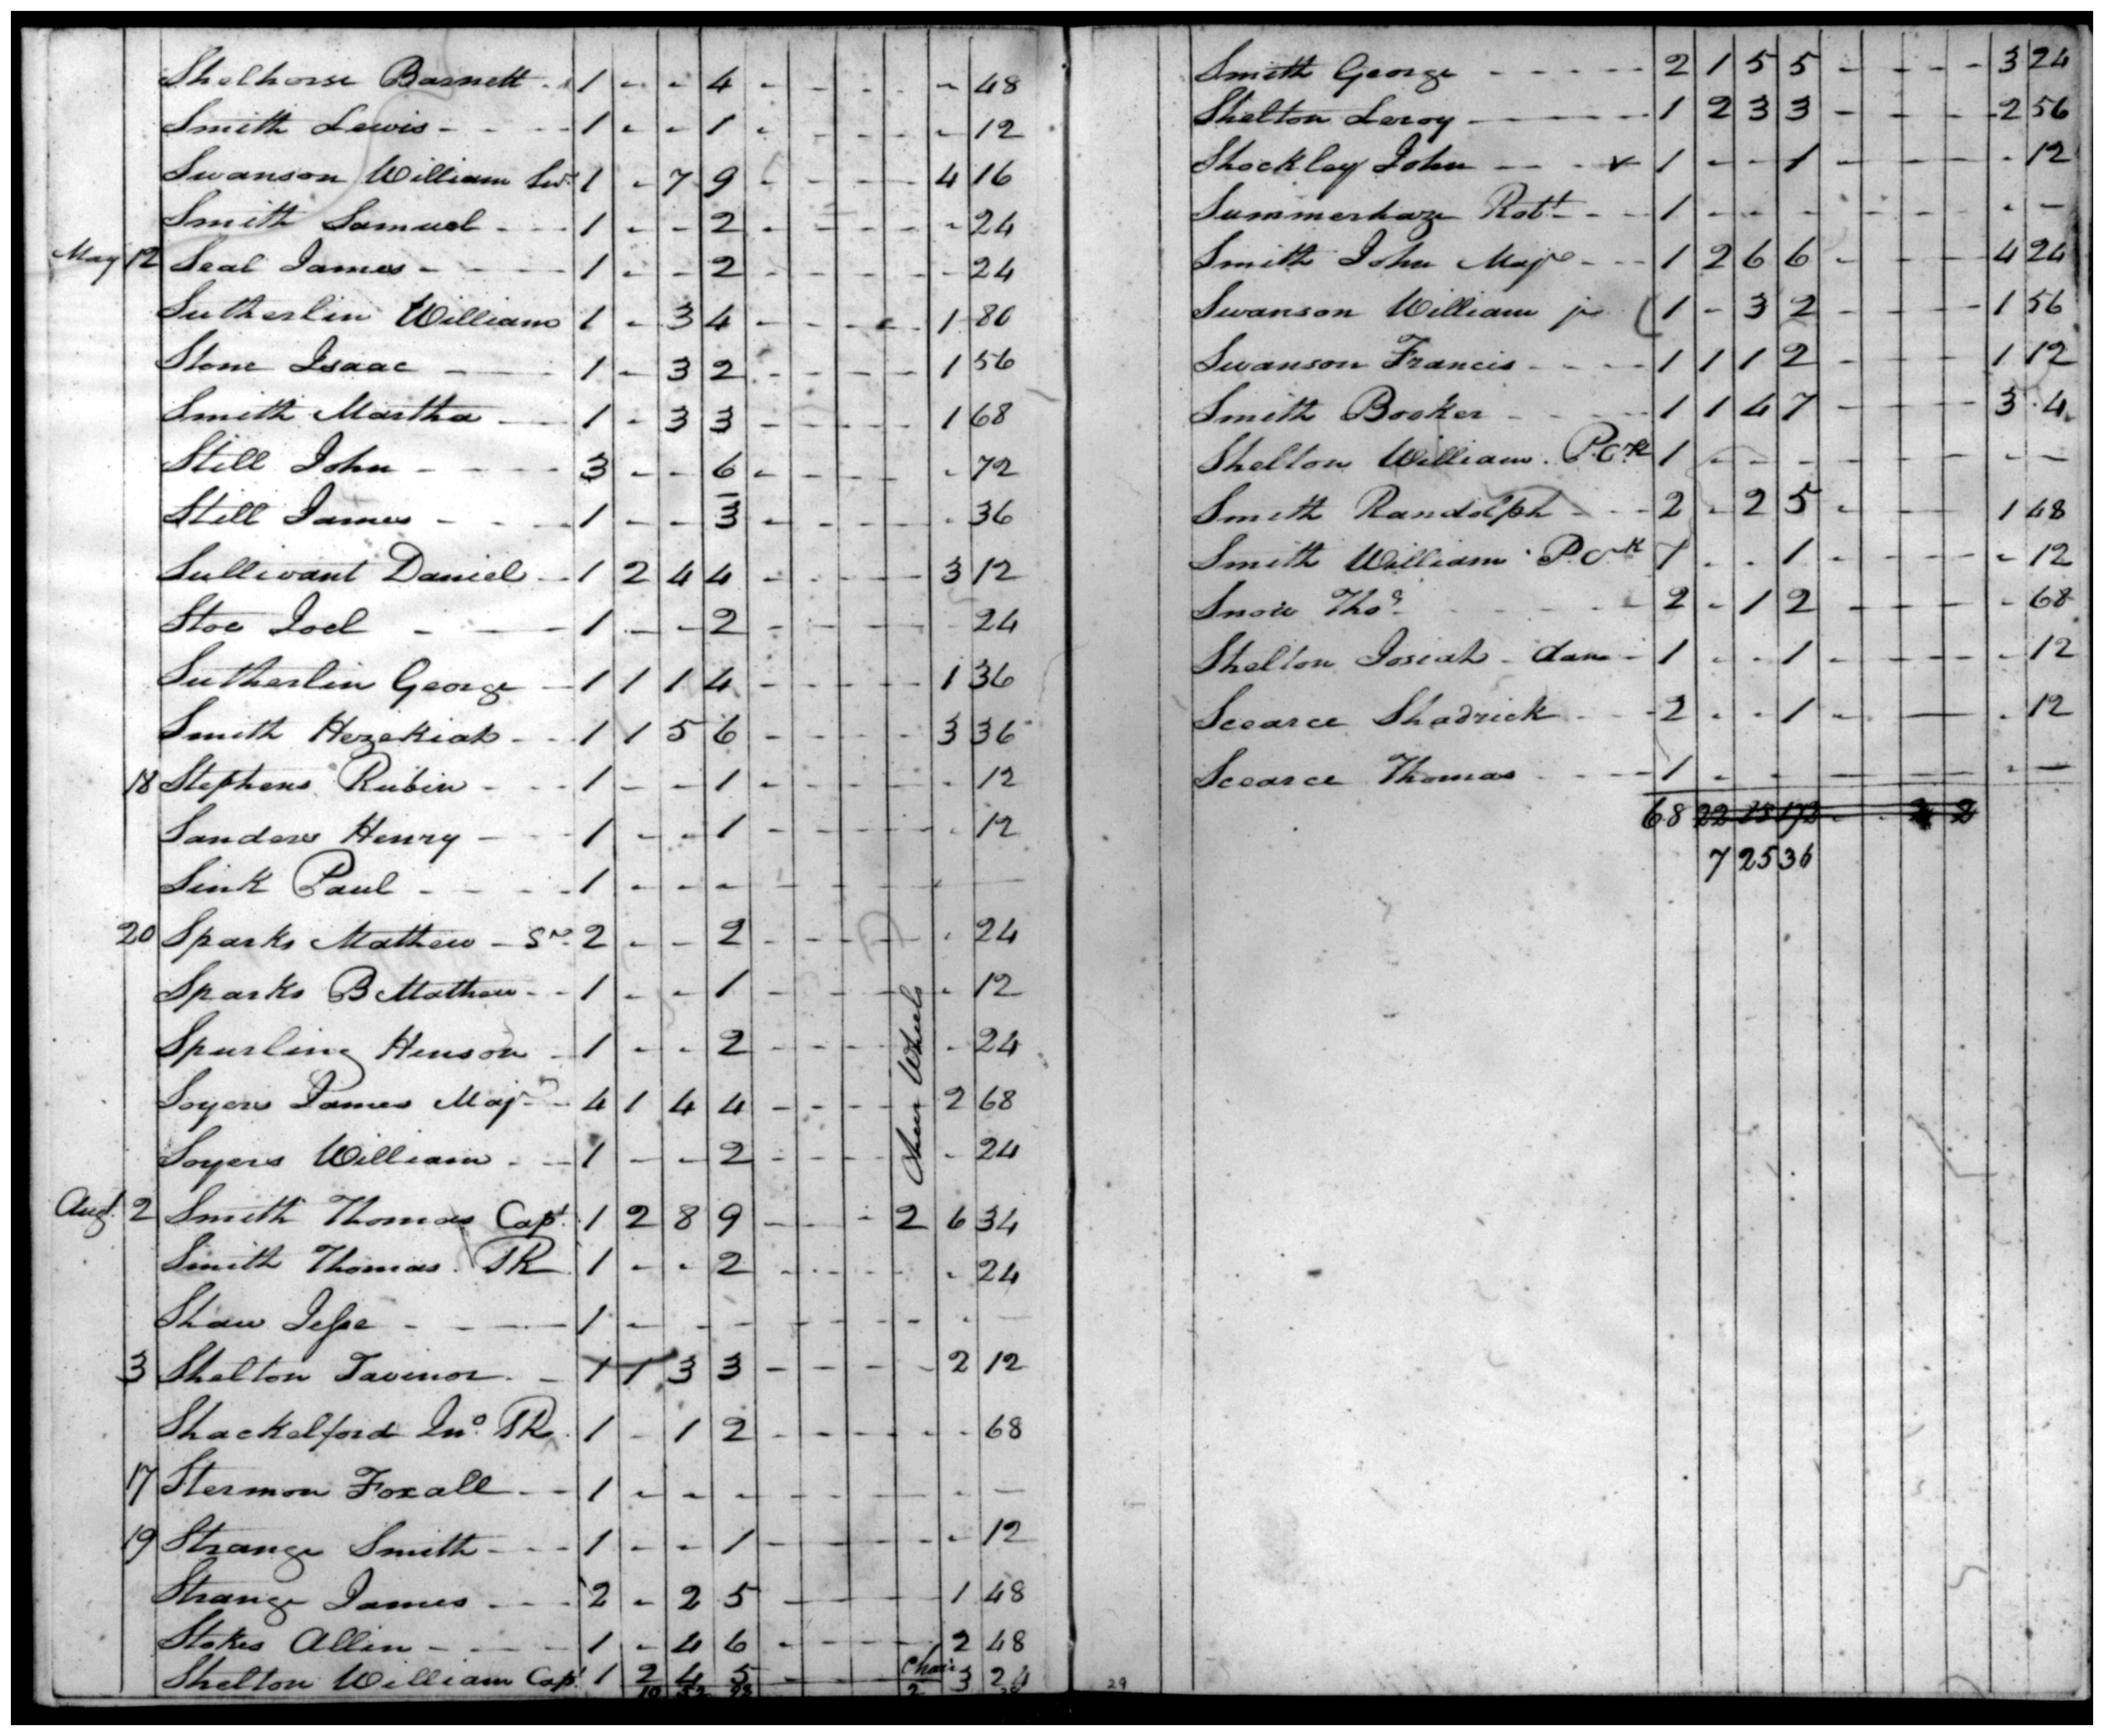 Shelhorse Barnett - 1 - - 4 - - - - - 48
Smith Lewis - - - - 1 - - 1 - - - - - 12
Swanson William Sr. 1 - 7 9 - - - - 4 16
Smith Samuel - - - 1 - - 2 - - - - - 24
May 12 Seal James - - - - 1 - - 2 - - - - - 24
Sutherlin William 1 - 3 4 - - - - 1 80
Stone Isaac - - - 1 - 3 2 - - - - 1 56
Smith Martha - - 1 - 3 3 - - - - 1 68
Still John - - - - 3 - - 6 - - - - - 72
Still James - - - 1 - - 3 - - - - - 36
Sullivant Daniel - 1 2 4 4 - - - - 3 12
Stoe Joel - - - 1 - - 2 - - - - 24
Sutherlin George - 1 1 1 4 - - - - 1 36
Smith Hezekiah - - 1 1 5 6 - - - - 3 36
18 Stephens Rubin - - - 1 - - 1 - - - - - 12
Sanders Henry - - 1 - - 1 - - - - - 12
Sink Paul - - - - 1 - - - - - - - - —
20 Sparks Mathew - Sr. 2 - - 2 - - - - - 24
Sparks B Mathew - - 1 - - 1 - - - - - 12
Spurling Henson - 1 - - 2 - - - - - 24
Soyers James Majr - - 4 1 4 4 - - - - 2 68
Soyers William - - 1 - - 2 - - - - - 24
Chair Wheels
Augt. 2 Smith Thomas Capt. 1 2 8 9 - - - 2 6 34
Smith Thomas. PR 1 - - 2 - - - - - 24
Shaw Jesse - - - 1 - - - - - - - - —
3 Shelton Tavenor - - 1 1 3 3 - - - - 2 12
Shackelford Jno. PR. 1 - 1 2 - - - - - 68
17 Stermon Foxall - - 1 - - - - - - - - —
19 Strange Smith - - - 1 - - 1 - - - - - 12
Strange James - - - 2 - 2 5 - - - - 1 48
Stokes Allin - - - - 1 - 4 6 - - - - 2 48
Shelton William Capt. 1 2 4 5 - - - Chair 3 24
2
Smith George - - - - - 2 1 5 5 - - - - 3 24
Shelton Leroy - - - 1 2 3 3 - - - - 2 56
Shockley John - - - v 1 - - 1 - - - - - 12
Summerhaze Robt. - - - 1 - - - - - - - - —
Smith John Majr - - - 1 2 6 6 - - - - 4 24
Swanson William jr ( 1 - 3 2 - - - - 1 56
Swanson Francis - - - - 1 1 1 2 - - - 1 12
Smith Booker - - - - 1 1 4 7 - - - - 3 4
Shelton William. P.Crk 1 - - - - - - - - —
Smith Randolph - - - 2 - 2 5 - - - 1 48
Smith William P.Crk 1 - - 1 - - - - - 12
Snow Thos. - - - - 2 - 1 2 - - - - - 68
Shelton Josiah - dan - 1 - - 1 - - - - - 12
Scearce Shadrick - - - 2 - - 1 - — - 12
Scearce Thomas - - - - 1 - - - - - - —
68 22
7 25 36
29